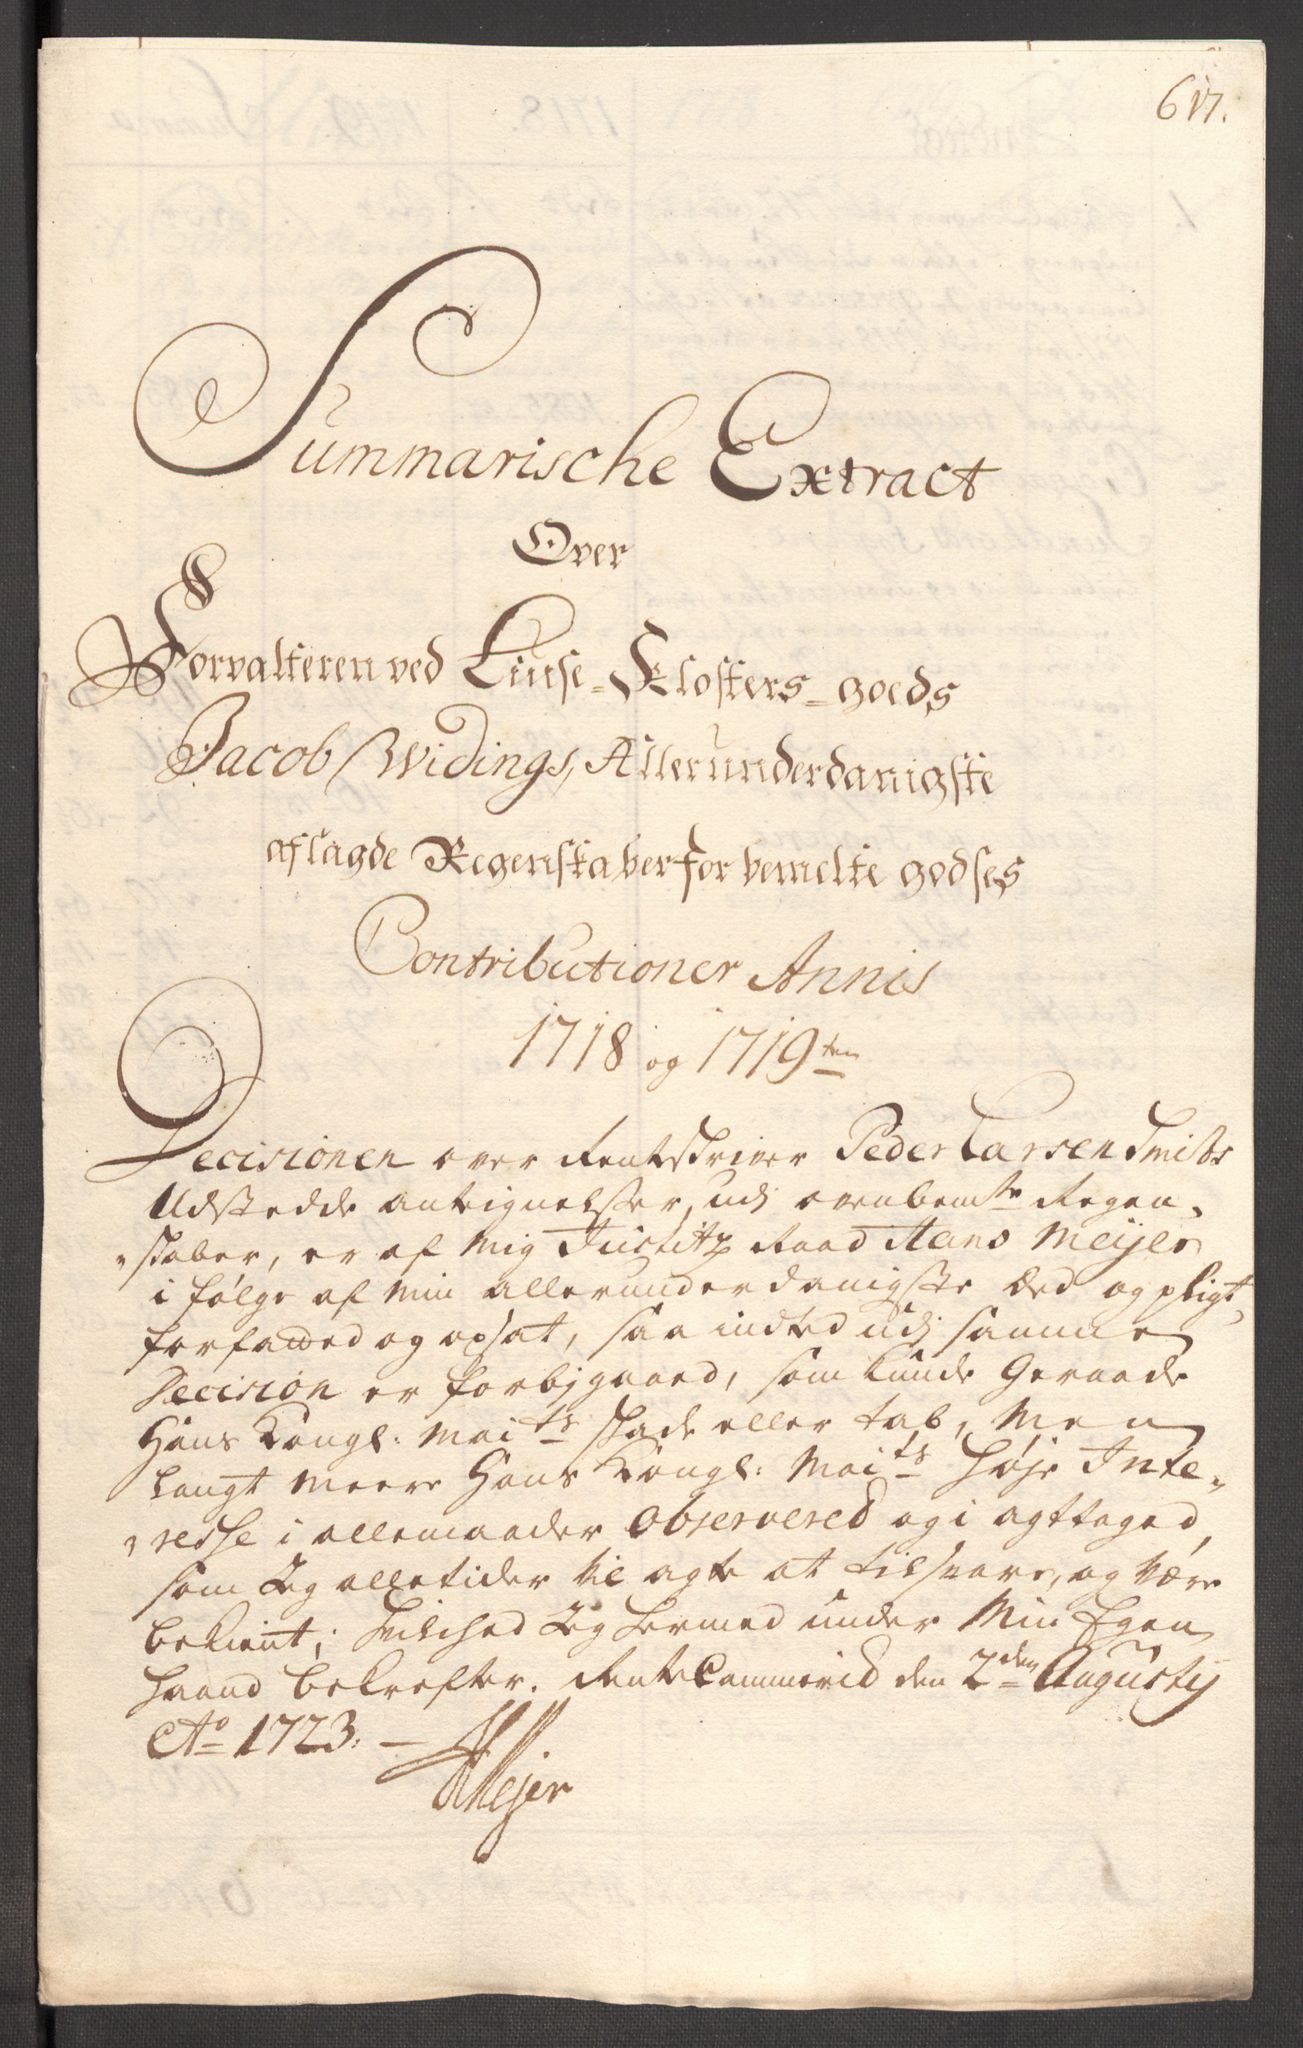 617.
Summarische Extract
Over
Forvalteren ved Liuse-Klosters-goeds
Jacob Widings, Allerunderdanigste
aflagde Regenskaber for bemelte godses
Contributioner Annis
1718 og 1719ten
Decisionen over Rentskriver Peder Larsen Smiths
Udstedde antegnelsser, udj ovenbemte Regen-
-skaber, er af Mig Justitz Raad Hans Meijer
i følge af Min allerunderdanigste Eed og pligt
forfatted og opsat, saa indted udj samme
Decision er forbjgaaed, som kunde Geraade
Hans Kongl: Maits skade eller tab, Men
langt Meere Hans Kongl: Maits høje Inte-
-resse i allemaader Observered og i agttaged,
som Jeg alletider vil agte at tilsvare, og være
bekient; hvilched Jeg hermed under Min Egen
haand bekrefter. Rente Cammerid den 2den Augustij
Ao 1723. —
HMejer